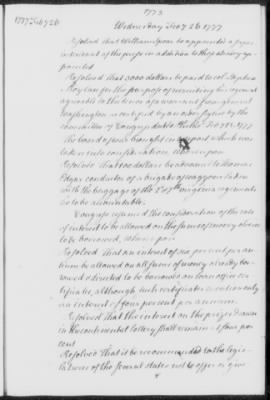 1773
1777 Feby 26
Wednesday Feby 26 1777
Resolved that William Govr be appointed a pages
in the room of the person in addition to those already ap-
pointed
Resolved that 2000 dollars be paid to col. Stephen
Moylan for the purpose of recruiting his regiment
agreeable to the order of war and from general
Washington as certified by an order by the
committee of Congress dated Philad
The board of war brought in a report which was
taken into consideration, whereupon
Resolved That 100 dollars be advanced to Thomas
Edgar conductor of a brigade of waggons laden
with the baggage of the Virginia regiments
he to be accountable.
Congress resumed the consideration of the rate
of interest to be allowed on the sums of money ordered
to be borrowed, whereupon
Resolved That an interest of six per cent per an-
num be allowed on all sums of money already bor-
rowed or directed to be borrowed on loan office cer-
tificates, although such certificates mention only
an interest of four per cent per annum.
Resolved That the interest on the prizes drawn
in the continental lottery shall remain at four per
cent
Resolved That it be recommended to the legis-
latures of the several states not to offer or give